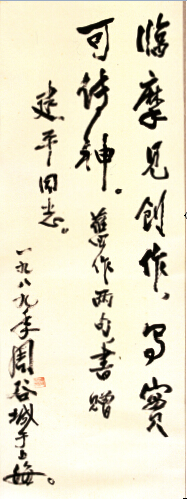 临摩见创作、写实
可传神。旧作两句书赠
建平同志。
一九八九年周谷城于上海。